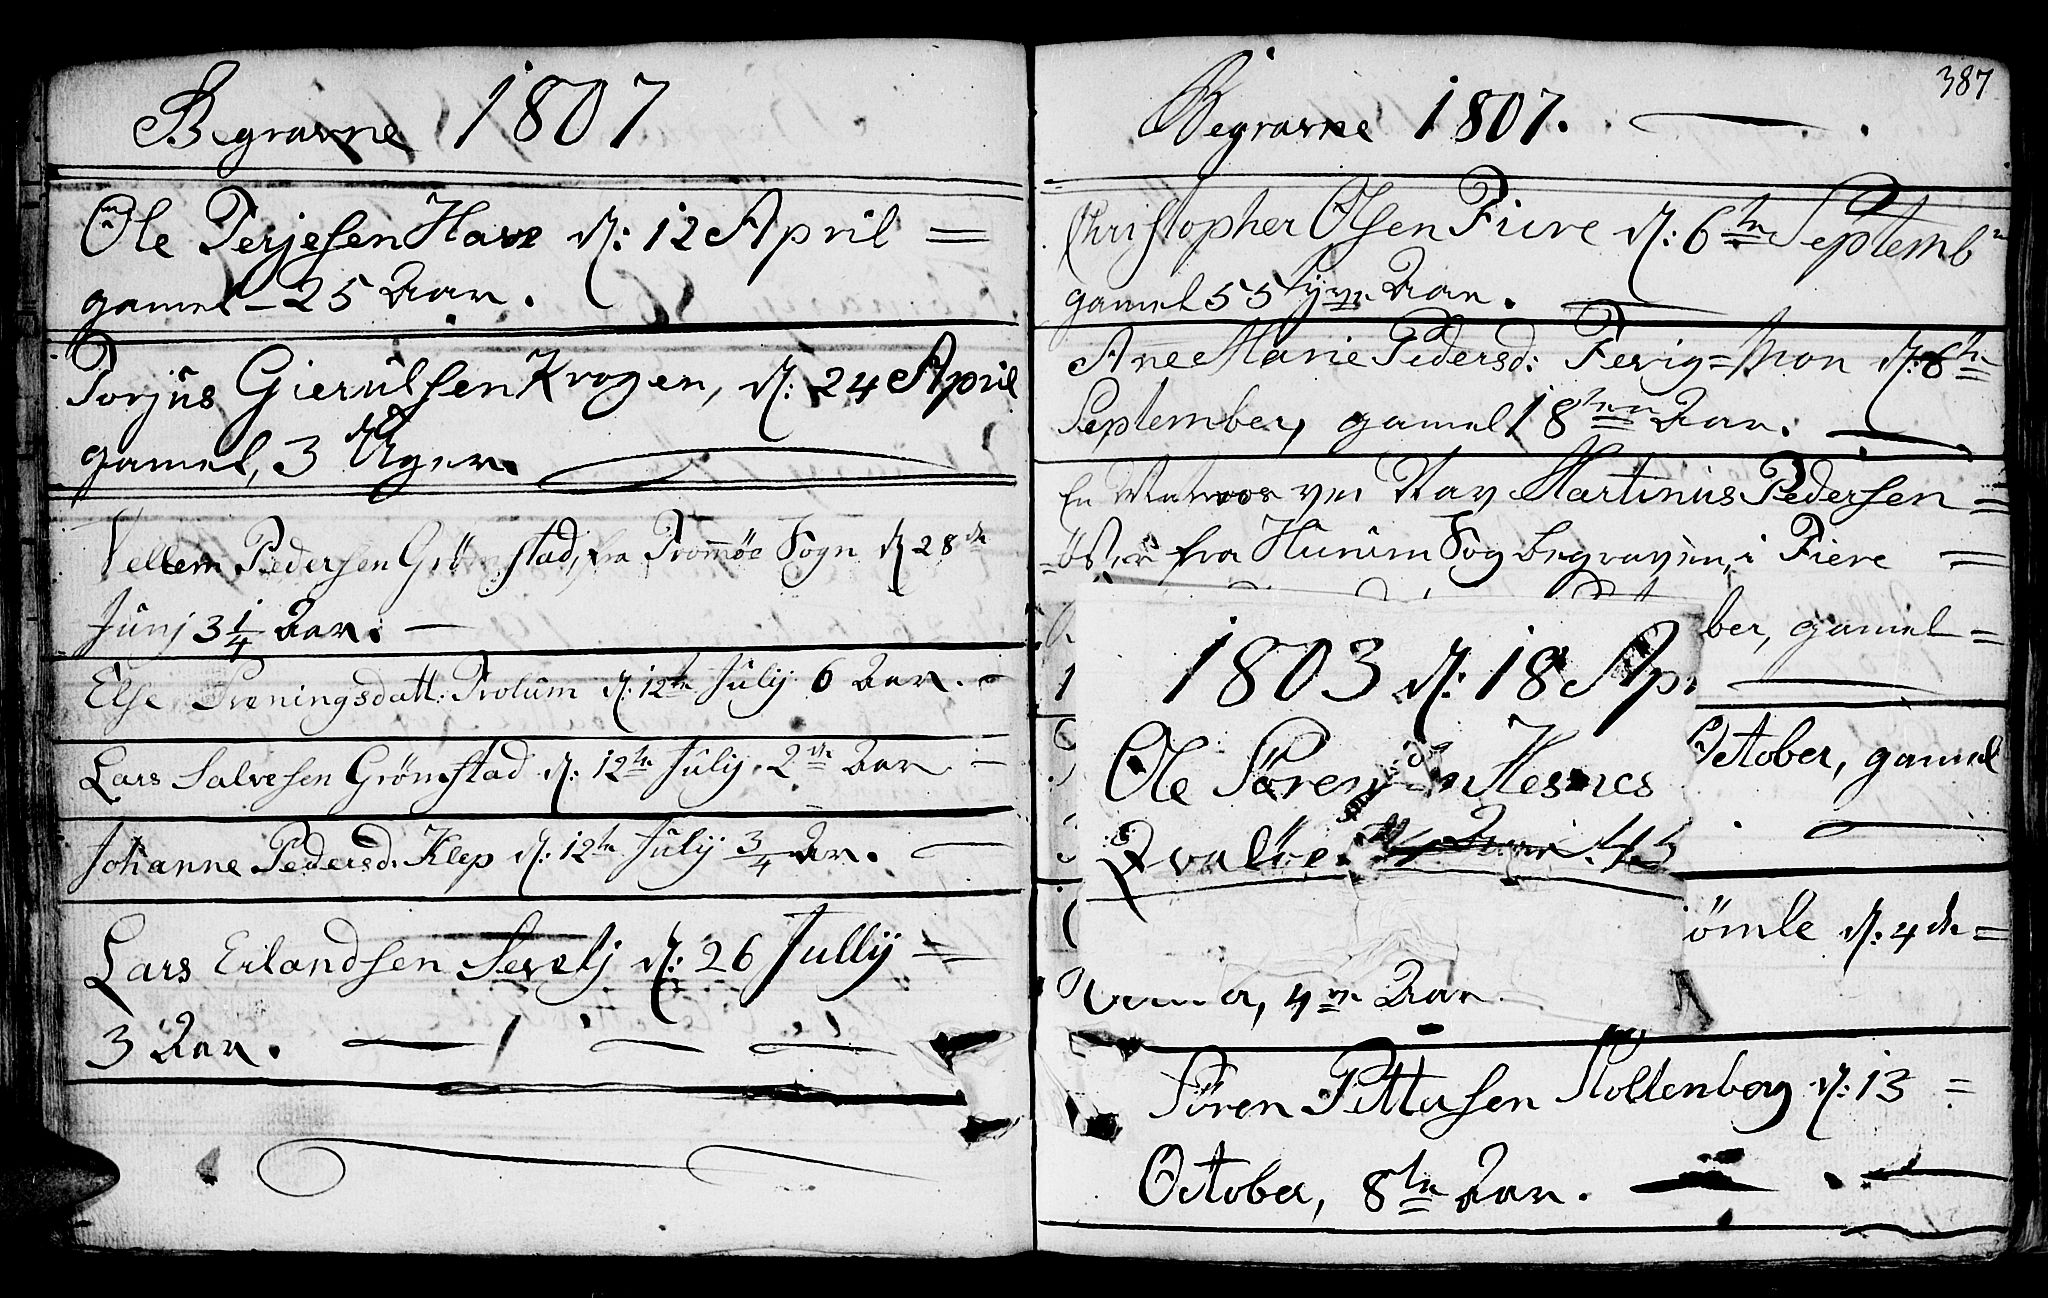 Begravne 1807
Ole Terjesen Have d: 12 April =
gamel – 25 Aar.
Torjus Gierulsen Krogen, d: 24 April
gamel, 3 Uger.
Vellem Pedersen Grömstad, fra Tromöe Sogn d 28de
Junj 3 1/4 Aar. —
Else Trøningsdatt: Trolum d: 12te Julij 6 Aar. –
Lars Salvesen Grömstad d: 12te Julij 2de Aar –
Johanne Pedersd: Klep d: 12te Julij 3/4 Ar. —
Lars Erlandsen d: 26 Jullij =
3 Aar.
387
Begravne 1807.
Christopher Olsen Fiere d: 6te Septemb
gamel 55 Aar.
Ane Marie Pedersd: Ferig=Mon d: 6te
September, gamel 18ten Aar.
En Matroos ved Nav Martinus Pedersen =
fra Hurum Sog begraven, i Fiere =
ber, gamel =
1803 d: 18 Ap
Ole Sörensen Hesnes
October, gamel
ömle d: 4de =
4re Aar.
Sören Pettersen Stoltenberg d: 13 =
October, 8te Aar.